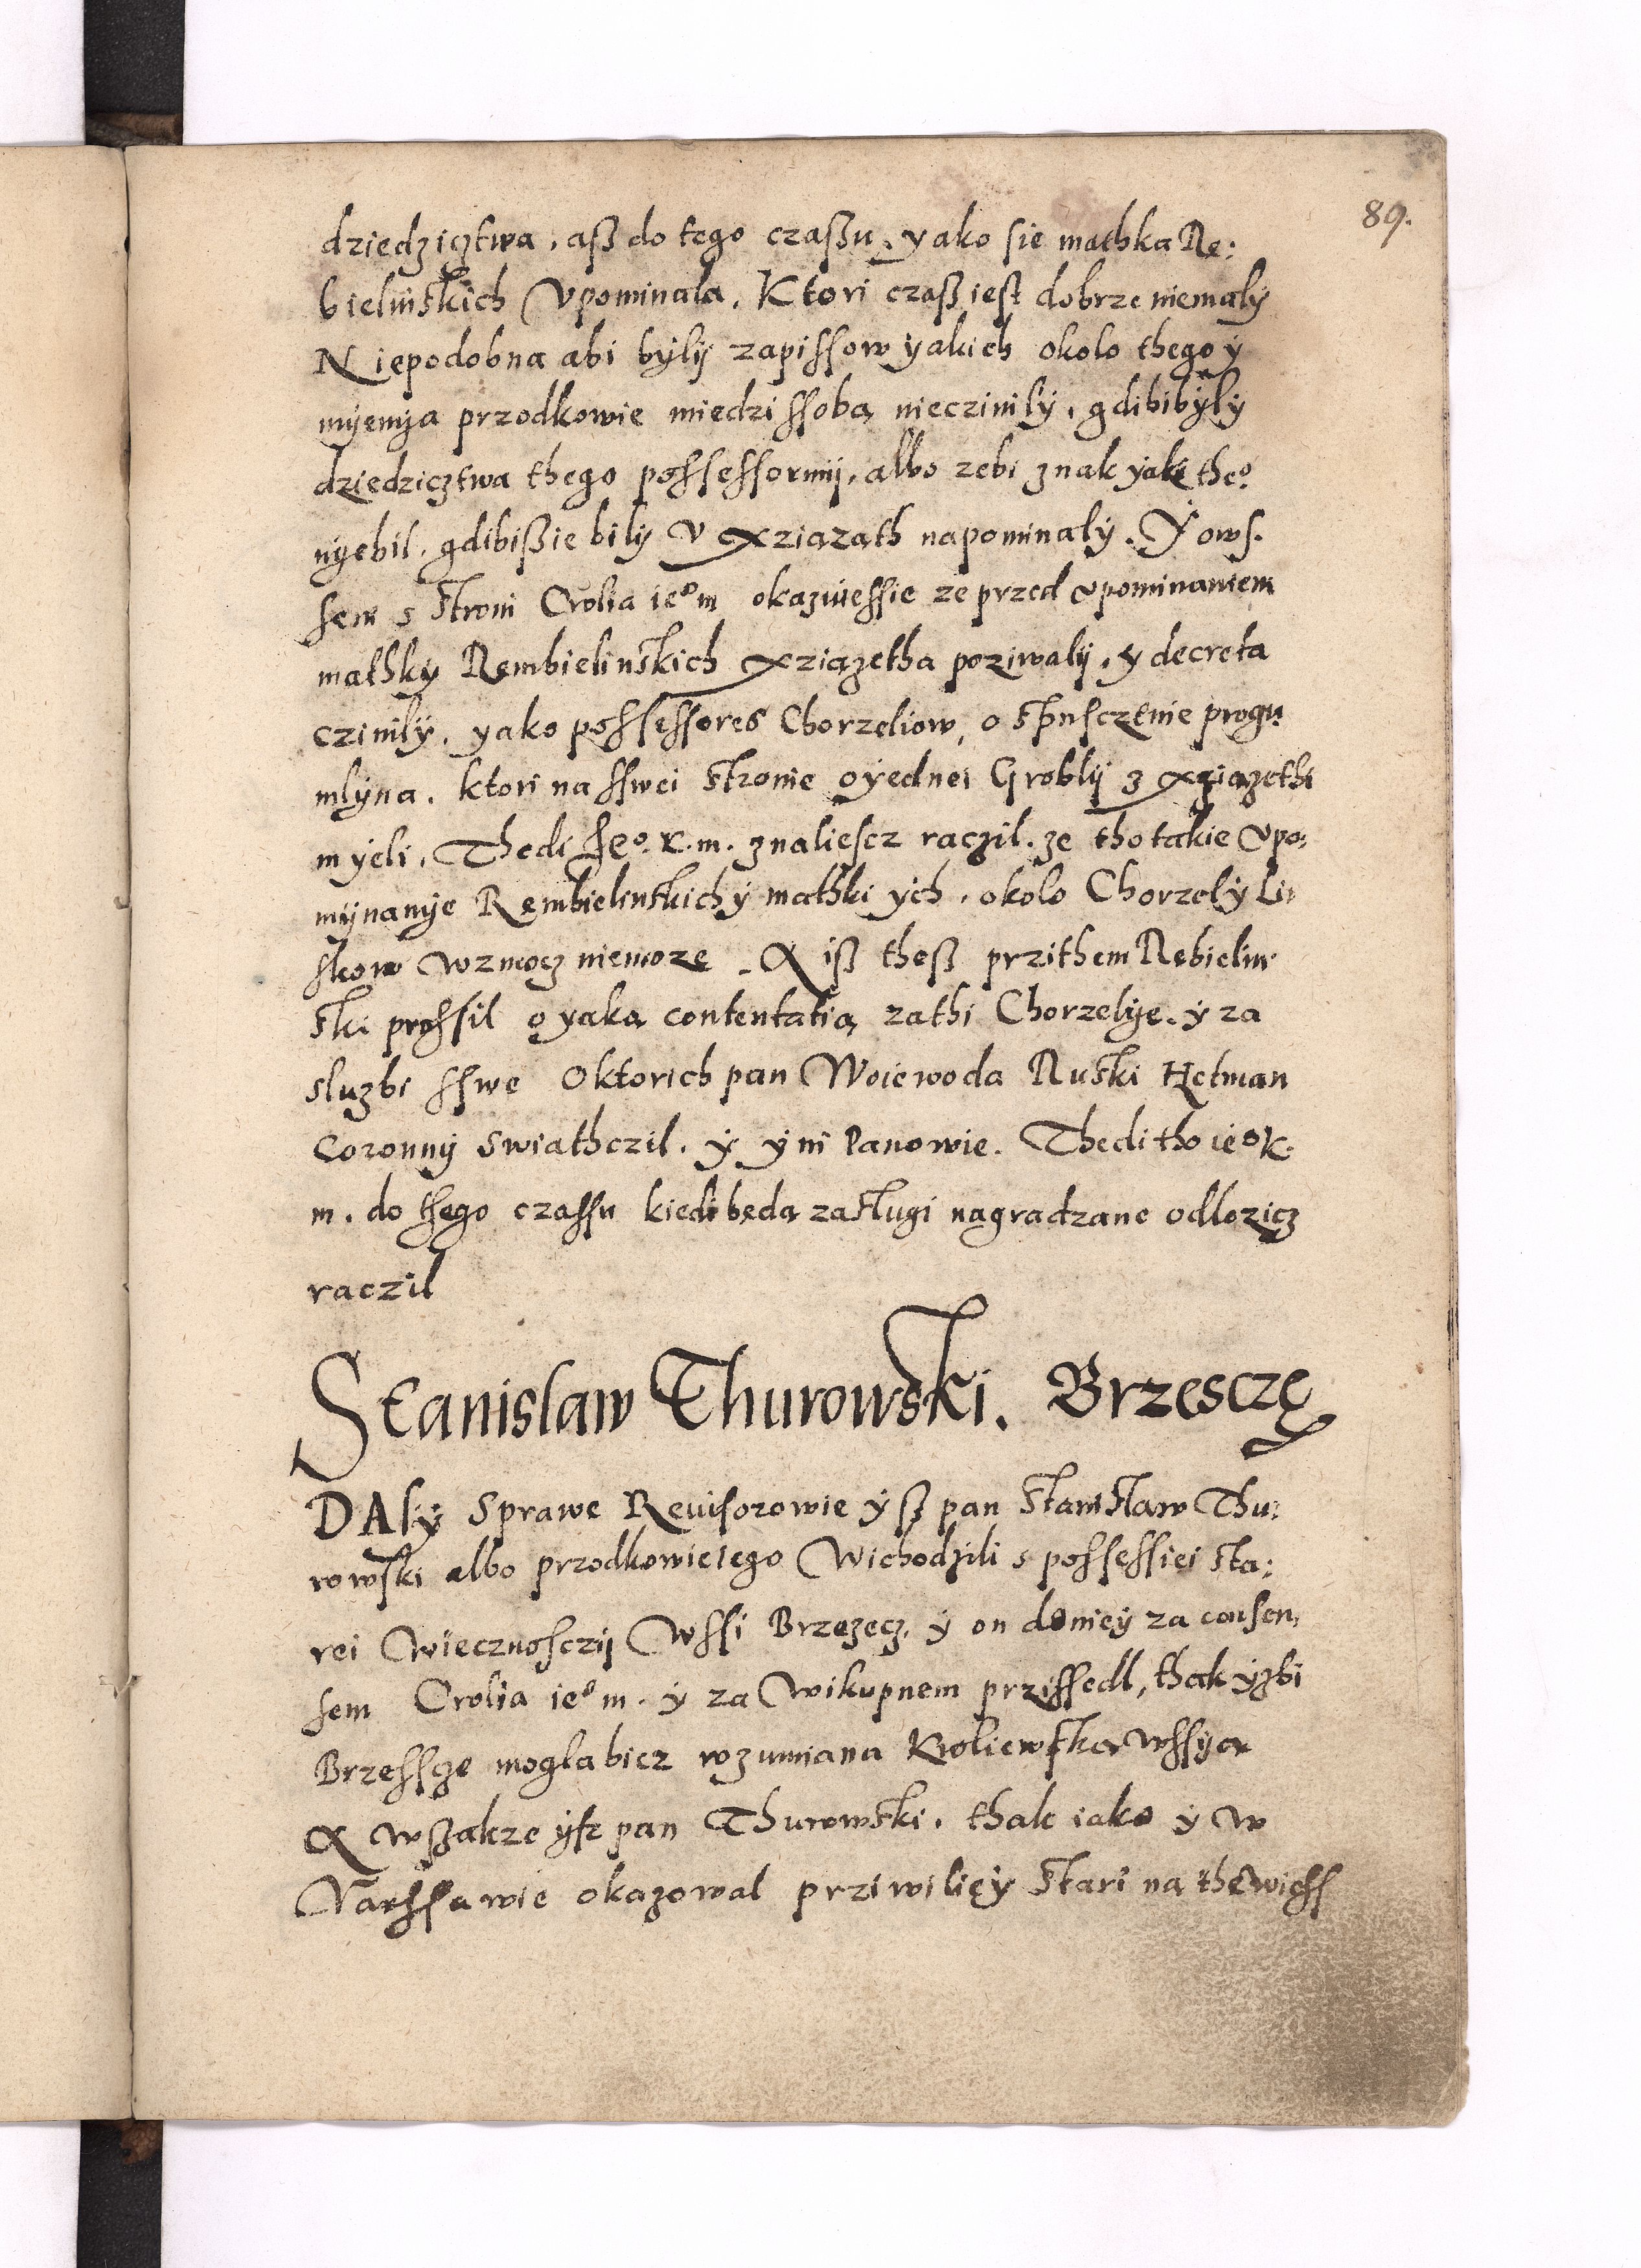 89.
dziedzicztwa, aß do tego czaßu, yako sie mathka Re:
bielinskich Vpominala, Ktori czaß iest dobrze niemalÿ
Niepodobna abi bÿlÿ zapissow ÿakich okolo thego ÿ
mÿemÿa przodkowie miedzi ssoba nieczinilÿ, gdibibÿlÿ
dziedzicztwa thego possessormÿ, albo zebi znak ÿaki the°
nÿebil, gdibißie bilÿ V Xziazath napominalÿ. Ÿ ows.
sem s stroni Crolia ie° m okazuiessie ze przed vpominaniem
mathkÿ Rembielinskich Xziązetha poziwalÿ, y decreta
czinilÿ, yako possessores Chorzeliow, o spusczenie progu
mlÿna, ktori na sswei stronie oÿednei Groblÿ z xziązethi
mÿeli, Thedi Je° K. m. znaliescz raczil, ze tho takie Vpo:
mÿnanÿe Rembielinskich ÿ mathki ÿch, okolo Chorzelÿ Li
skow wzmocz niemoze. A iß theß przithem Rebielin
ski prossil o yaka contentatią zathi Chorzelÿe, ÿ za
sluzbi sswe Oktorich pan Woiewoda Ruski Hetman
Coronnÿ swiathczil, ÿ ÿni Panowie. Thedi tho ie° K.
m. do thego czassu kiedi beda zaslugi nagradzane odlozicz
raczil
Stanislaw Thurowski. Brzesczę
DAlÿ Sprawe Reuisorowie ÿß pan Stanislaw Thu:
rowski albo przodkowie iego Wichodzili s possessiei Sta:
rei wiecznosczÿ Wssi Brzezecz, ÿ on doniey za consen,
sem Crolia ie° m. ÿ za Wikupnem przissedl, thak ÿzbi
Brzessczę mogla bicz rozumiana Kroliewska Wssÿa
A wszakze ÿsz pan Thurowski, thak iako ÿ w
Varssawie okazowal priwilieÿ Stari na thę wiess